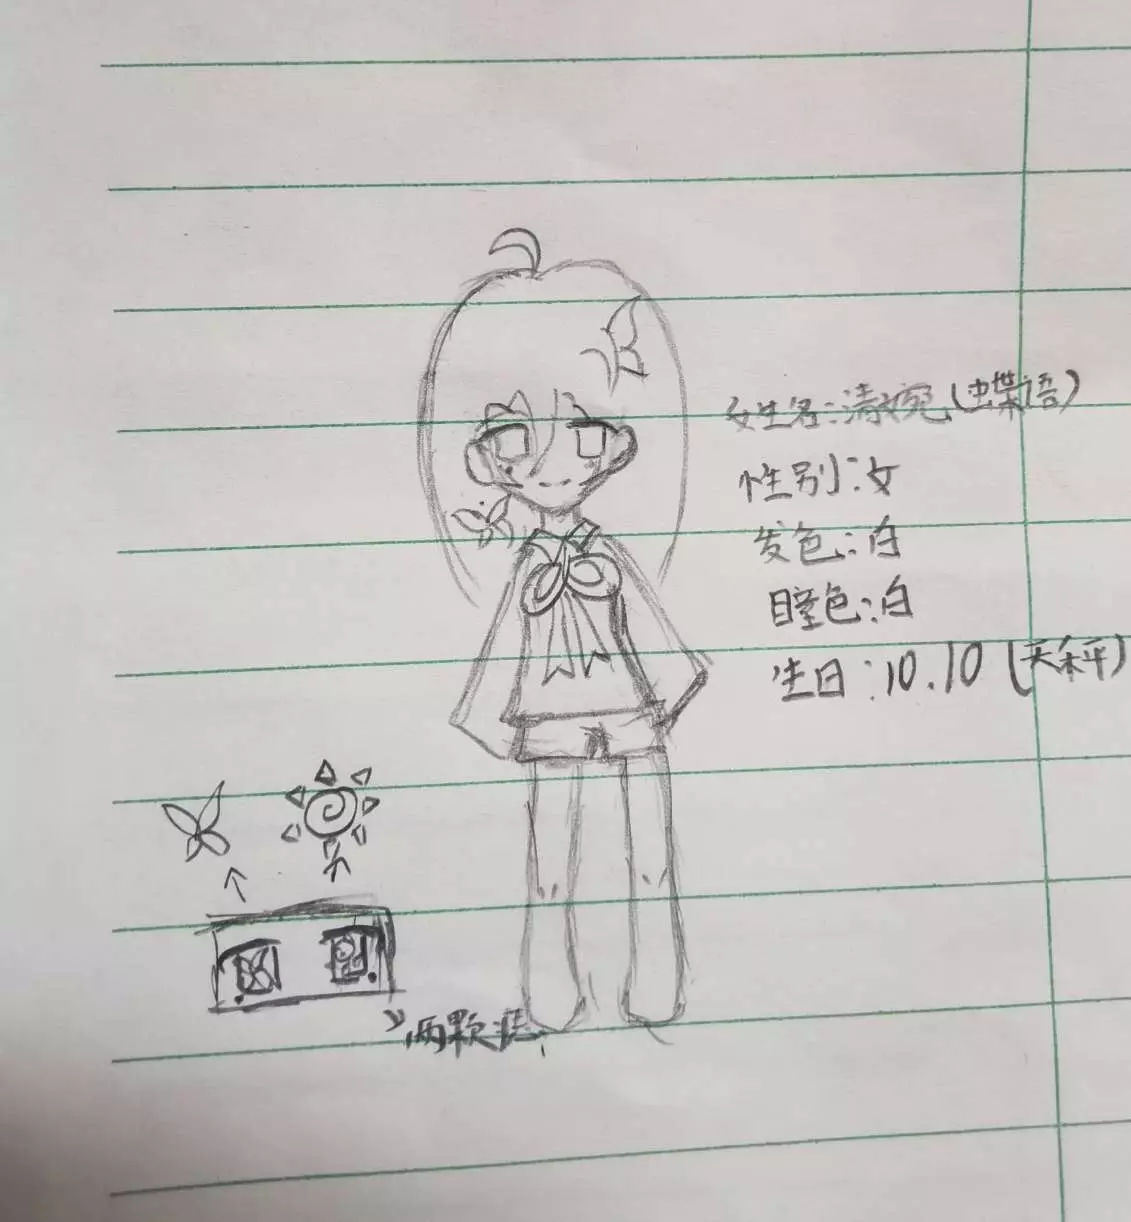 女生名:清婉(蝶语)
性别:女
发色:白
瞳色:白
生日:10.10(天秤)
两颗痣